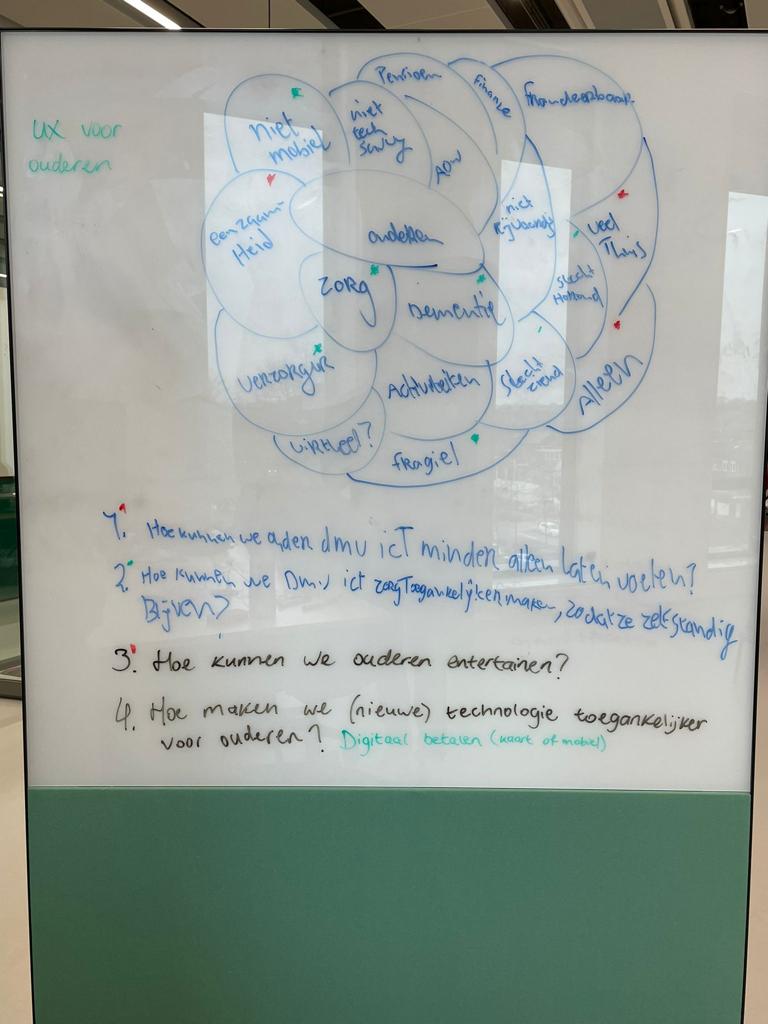 UX voor
ouderen
niet
mobiel
niet
tech
savvy
Pensioen
Finance
financieerbaar
AOW
eenzaam-
Heid
ouderen
niet
veel
Thuis
zorg
Dementie
slecht
verzorging
Activiteiten
slecht
ziend
Alleen
virtueel?
fragiel
1. Hoe kunnen we ouderen dmv icT minder alleen laten voelen?
2. Hoe kunnen we Dmv ict zorg Toegankelijker maken, zodat ze zelfstandig
Blijven?
3. Hoe kunnen we ouderen entertainen?
4. Hoe maken we (nieuwe) technologie toegankelijker
voor ouderen? Digitaal betalen (kaart of mobiel)